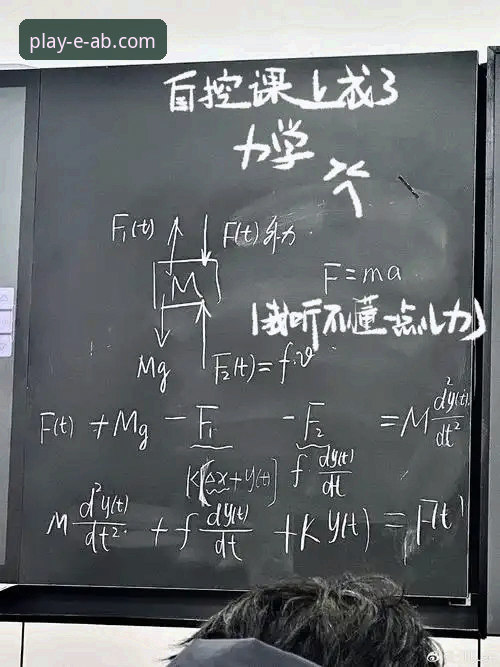 play-e-ab.com
自控课上成了
力学
F₁(t) F(t)外力
M
F=ma
(我听不懂一点儿力)
Mg F₂(t)=f·v
F(t) + Mg - F₁ - F₂ = M d²y(t)/dt²
K[Δx+y(t)] f dy(t)/dt
M d²y(t)/dt² + f dy(t)/dt + K y(t) = F(t)